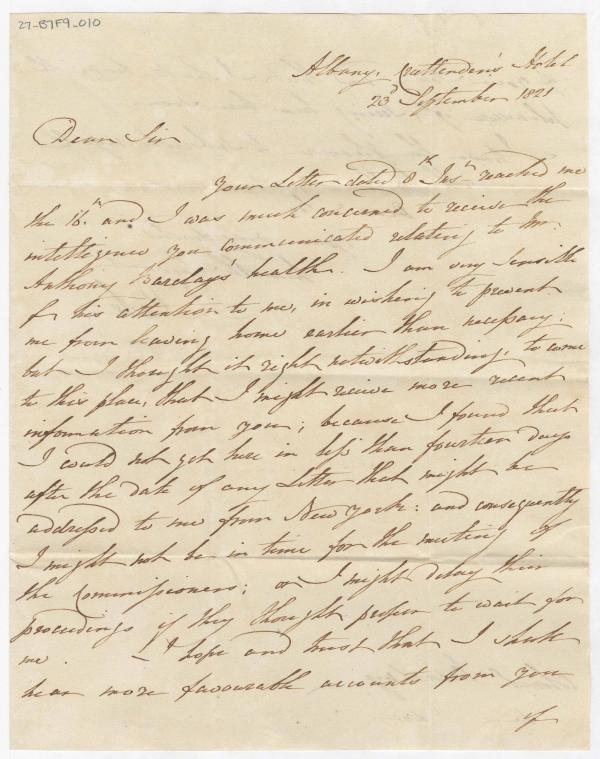 27-B7F9-010
Albany, Cruttenden's Hotel
23d September 1821
Dear Sir
your Letter dated 8th Inst reached me
the 16th and I was much concerned to receive the
intelligence you communicated relating to Mr.
Anthony Barclay's health. I am very sensible
of his attention to me, in wishing to prevent
me from leaving home earlier than necessary;
but I thought it right notwithstanding, to come
to this place, that I might receive more recent
information from you; because I found that
I could not get here in less than fourteen days
after the date of any Letter that might be
addressed to me from New York: and consequently
I might not be in time for the meeting of
the Commissioners; or I might delay their
proceedings if they thought proper to wait for
me. — I hope and trust that I shall
hear more favourable accounts from you